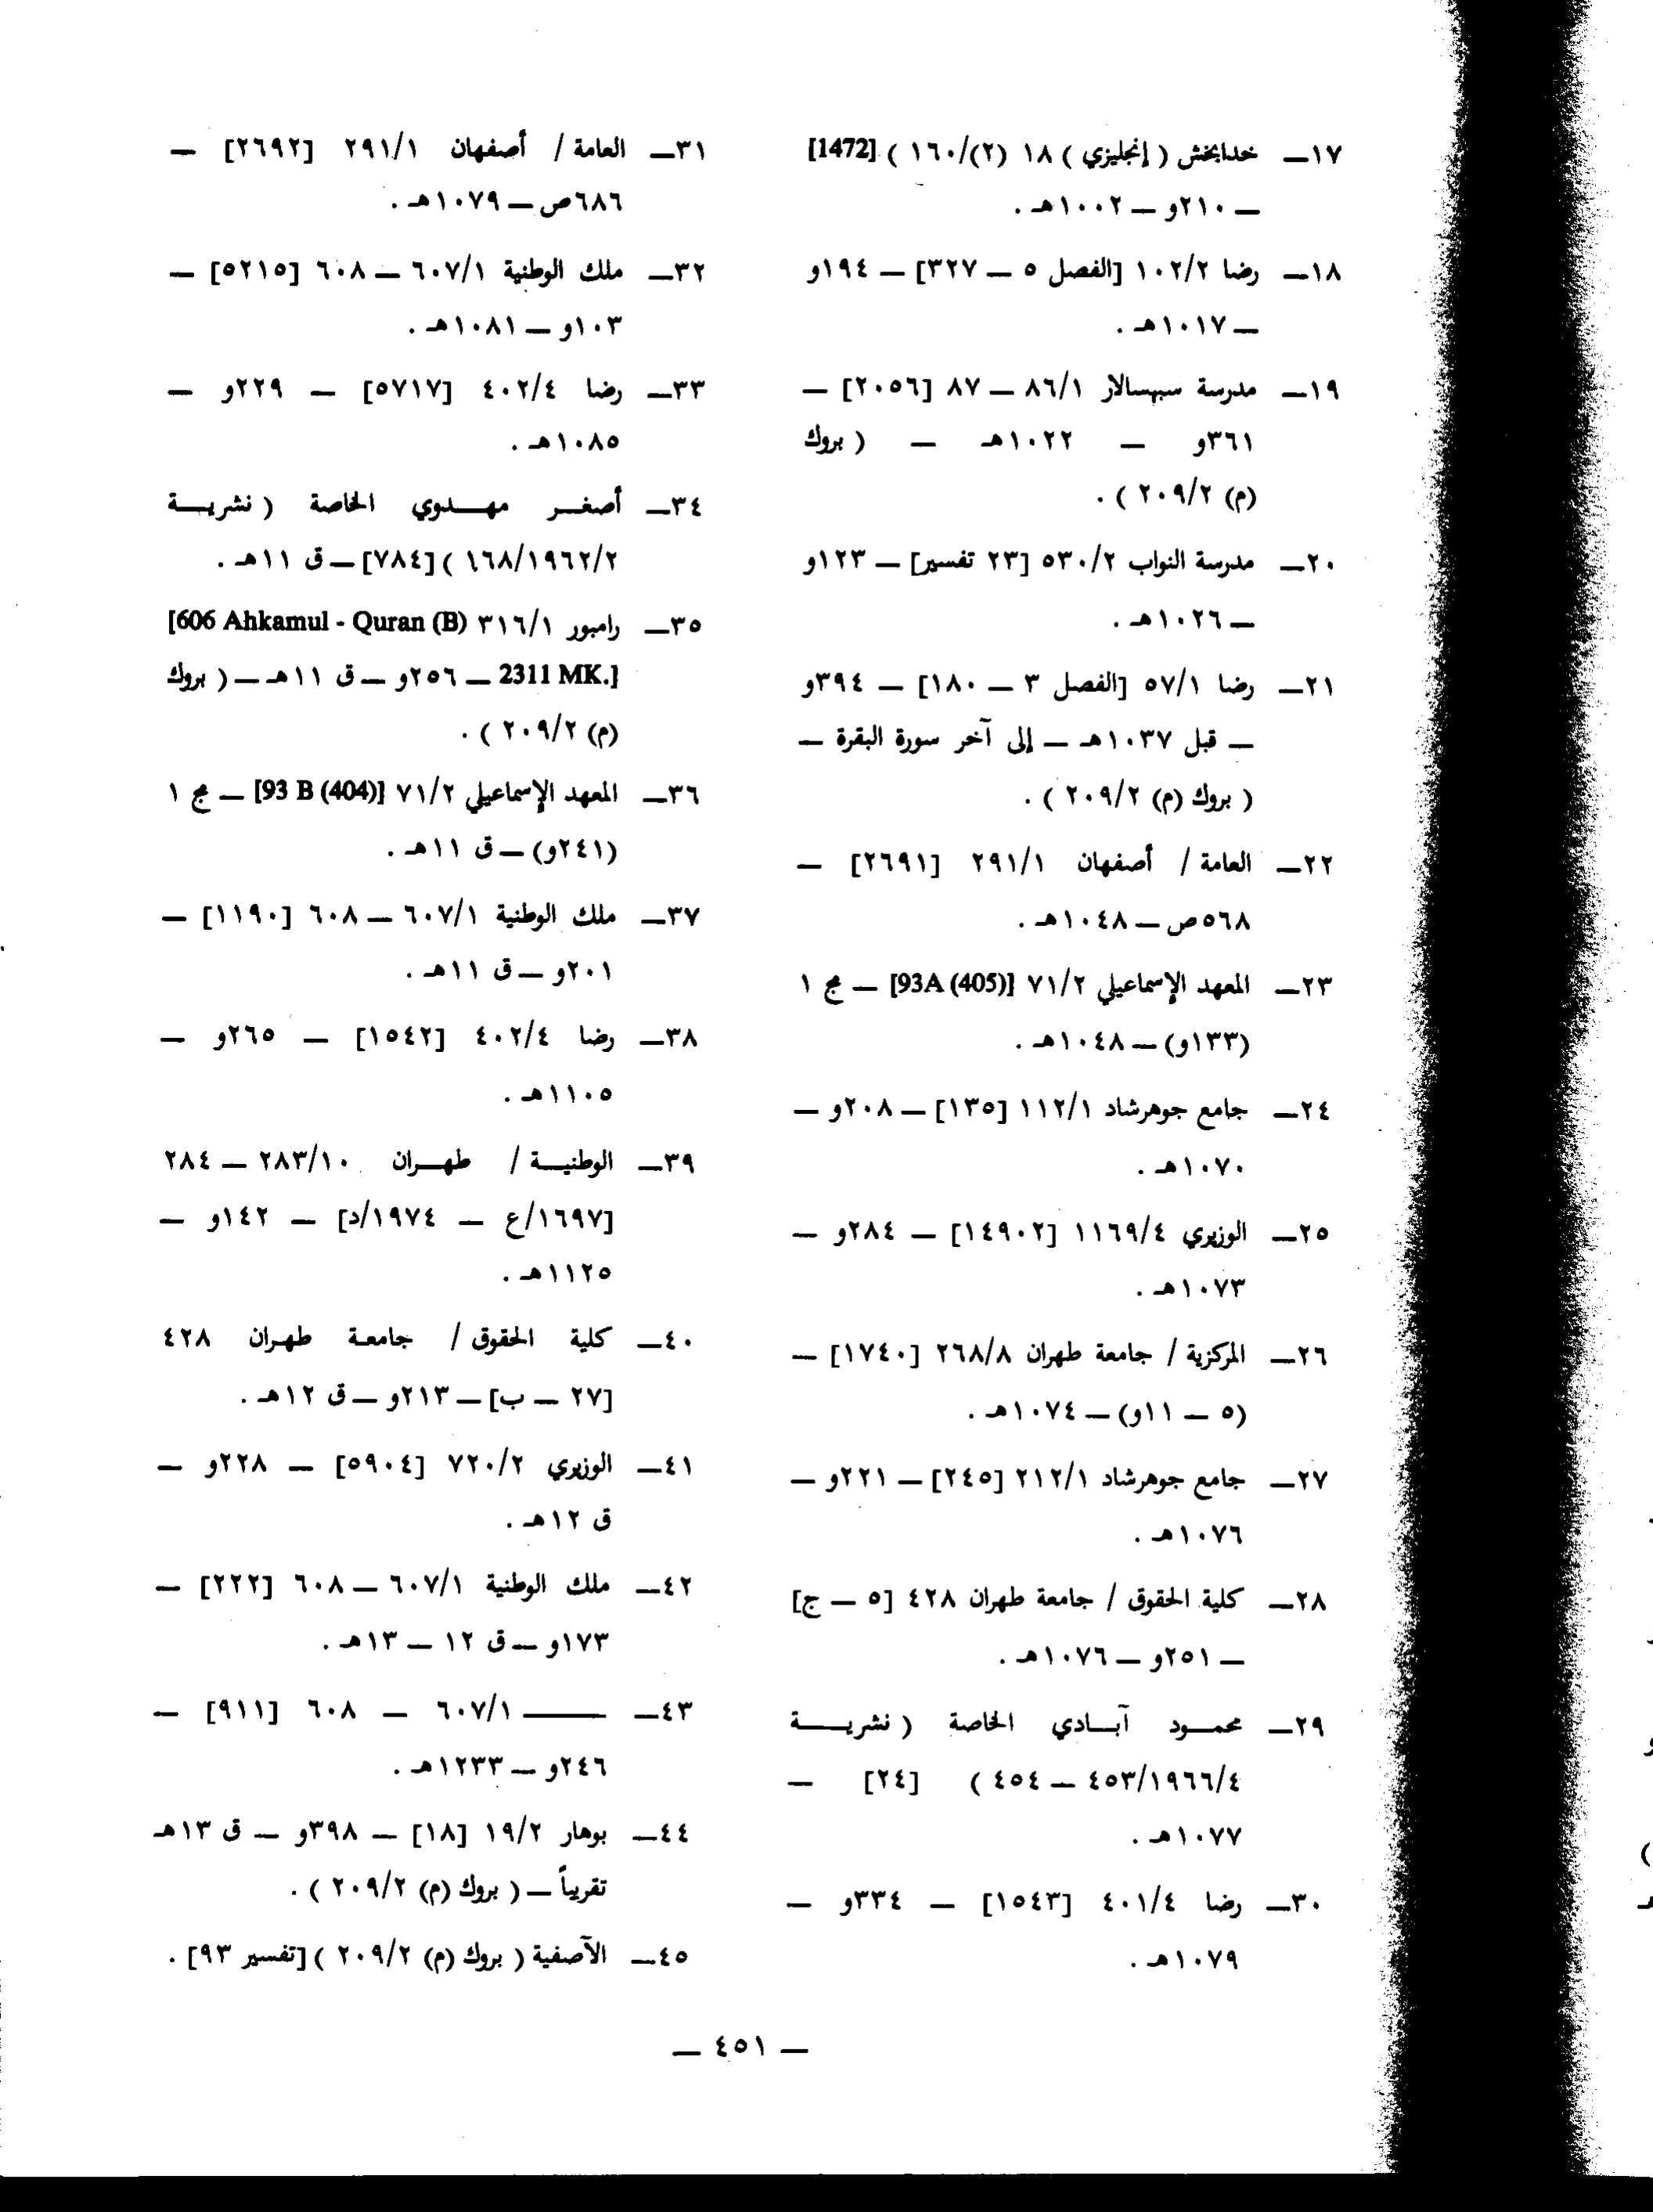 ١٧ــ خدابخش ( إنجليزي ) ١٨ (٢)/١٦٠ ) [1472]
ــ ٢١٠و ــ ١٠٠٢هـ .
١٨ــ رضا ١٠٢/٢ [الفصل ٥ ــ ٣٢٧] ــ ١٩٤و
ــ ١٠١٧هـ .
١٩ــ مدرسة سبهسالار ٨٦/١ ــ ٨٧ [٢٠٥٦] ــ
٣٦١و ــ ١٠٢٢هـ ــ ( بروك
(م) ٢٠٩/٢ ) .
٢٠ــ مدرسة النواب ٥٣٠/٢ [٢٣ تفسير] ــ ١٢٣و
ــ ١٠٢٦هـ .
٢١ــ رضا ٥٧/١ [الفصل ٣ ــ ١٨٠] ــ ٣٩٤و
ــ قبل ١٠٣٧هـ ــ إلى آخر سورة البقرة ــ
( بروك (م) ٢٠٩/٢ ) .
٢٢ــ العامة / أصفهان ٢٩١/١ [٢٦٩١] ــ
٥٦٨ص ــ ١٠٤٨هـ .
٢٣ــ المعهد الإسماعيلي ٧١/٢ [93A (405)] ــ مج ١
(١٣٣و) ــ ١٠٤٨هـ .
٢٤ــ جامع جوهرشاد ١١٢/١ [١٣٥] ــ ٢٠٨و ــ
١٠٧٠هـ .
٢٥ــ الوزيري ١١٦٩/٤ [١٤٩٠٢] ــ ٢٨٤و ــ
١٠٧٣هـ .
٢٦ــ المركزية / جامعة طهران ٢٦٨/٨ [١٧٤٠] ــ
(٥ ــ ١١و) ــ ١٠٧٤هـ .
٢٧ــ جامع جوهرشاد ٢١٢/١ [٢٤٥] ــ ٢٢١و ــ
١٠٧٦هـ .
٢٨ــ كلية الحقوق / جامعة طهران ٤٢٨ [٥ ــ ج]
ــ ٢٥١و ــ ١٠٧٦هـ .
٢٩ــ محمــود آبــادي الخاصة ( نشريــــة
٤٥٣/١٩٦٦/٤ ــ ٤٥٤ ) [٢٤] ــ
١٠٧٧هـ .
٣٠ــ رضا ٤٠١/٤ [١٥٤٣] ــ ٣٣٤و ــ
١٠٧٩هـ .
٣١ــ العامة / أصفهان ٢٩١/١ [٢٦٩٢] ــ
٦٨٦ص ــ ١٠٧٩هـ .
٣٢ــ ملك الوطنية ٦٠٧/١ ــ ٦٠٨ [٥٢١٥] ــ
١٠٣و ــ ١٠٨١هـ .
٣٣ــ رضا ٤٠٢/٤ [٥٧١٧] ــ ٢٢٩و ــ
١٠٨٥هـ .
٣٤ــ أصغــر مهــدوي الخاصة ( نشريــة
١٦٨/١٩٦٢/٢ ) [٧٨٤] ــ ق ١١هـ .
٣٥ــ رامبور ٣١٦/١ [606 Ahkamul - Quran (B)
2311 MK.] ــ ٢٥٦و ــ ق ١١هـ ــ ( بروك
(م) ٢٠٩/٢ ) .
٣٦ــ المعهد الإسماعيلي ٧١/٢ [93 B (404)] ــ مج ١
(٢٤١و) ــ ق ١١هـ .
٣٧ــ ملك الوطنية ٦٠٧/١ ــ ٦٠٨ [١١٩٠] ــ
٢٠١و ــ ق ١١هـ .
٣٨ــ رضا ٤٠٢/٤ [١٥٤٢] ــ ٢٦٥و ــ
١١٠٥هـ .
٣٩ــ الوطنيــة / طهــران ٢٨٣/١٠ ــ ٢٨٤
[١٦٩٧/ع ــ ١٩٧٤/د] ــ ١٤٢و ــ
١١٢٥هـ .
٤٠ــ كلية الحقوق / جامعة طهران ٤٢٨
[٢٧ ــ ب] ــ ٢١٣و ــ ق ١٢هـ .
٤١ــ الوزيري ٧٢٠/٢ [٥٩٠٤] ــ ٢٢٨و ــ
ق ١٢هـ .
٤٢ــ ملك الوطنية ٦٠٧/١ ــ ٦٠٨ [٢٢٢] ــ
١٧٣و ــ ق ١٢ ــ ١٣هـ .
٤٣ــ ــــــــ ٦٠٧/١ ــ ٦٠٨ [٩١١] ــ
٢٤٦و ــ ١٢٣٣هـ .
٤٤ــ بوهار ١٩/٢ [١٨] ــ ٣٩٨و ــ ق ١٣هـ
تقريباً ــ ( بروك (م) ٢٠٩/٢ ) .
٤٥ــ الآصفية ( بروك (م) ٢٠٩/٢ ) [تفسير ٩٣] .
ــ ٤٥١ ــ